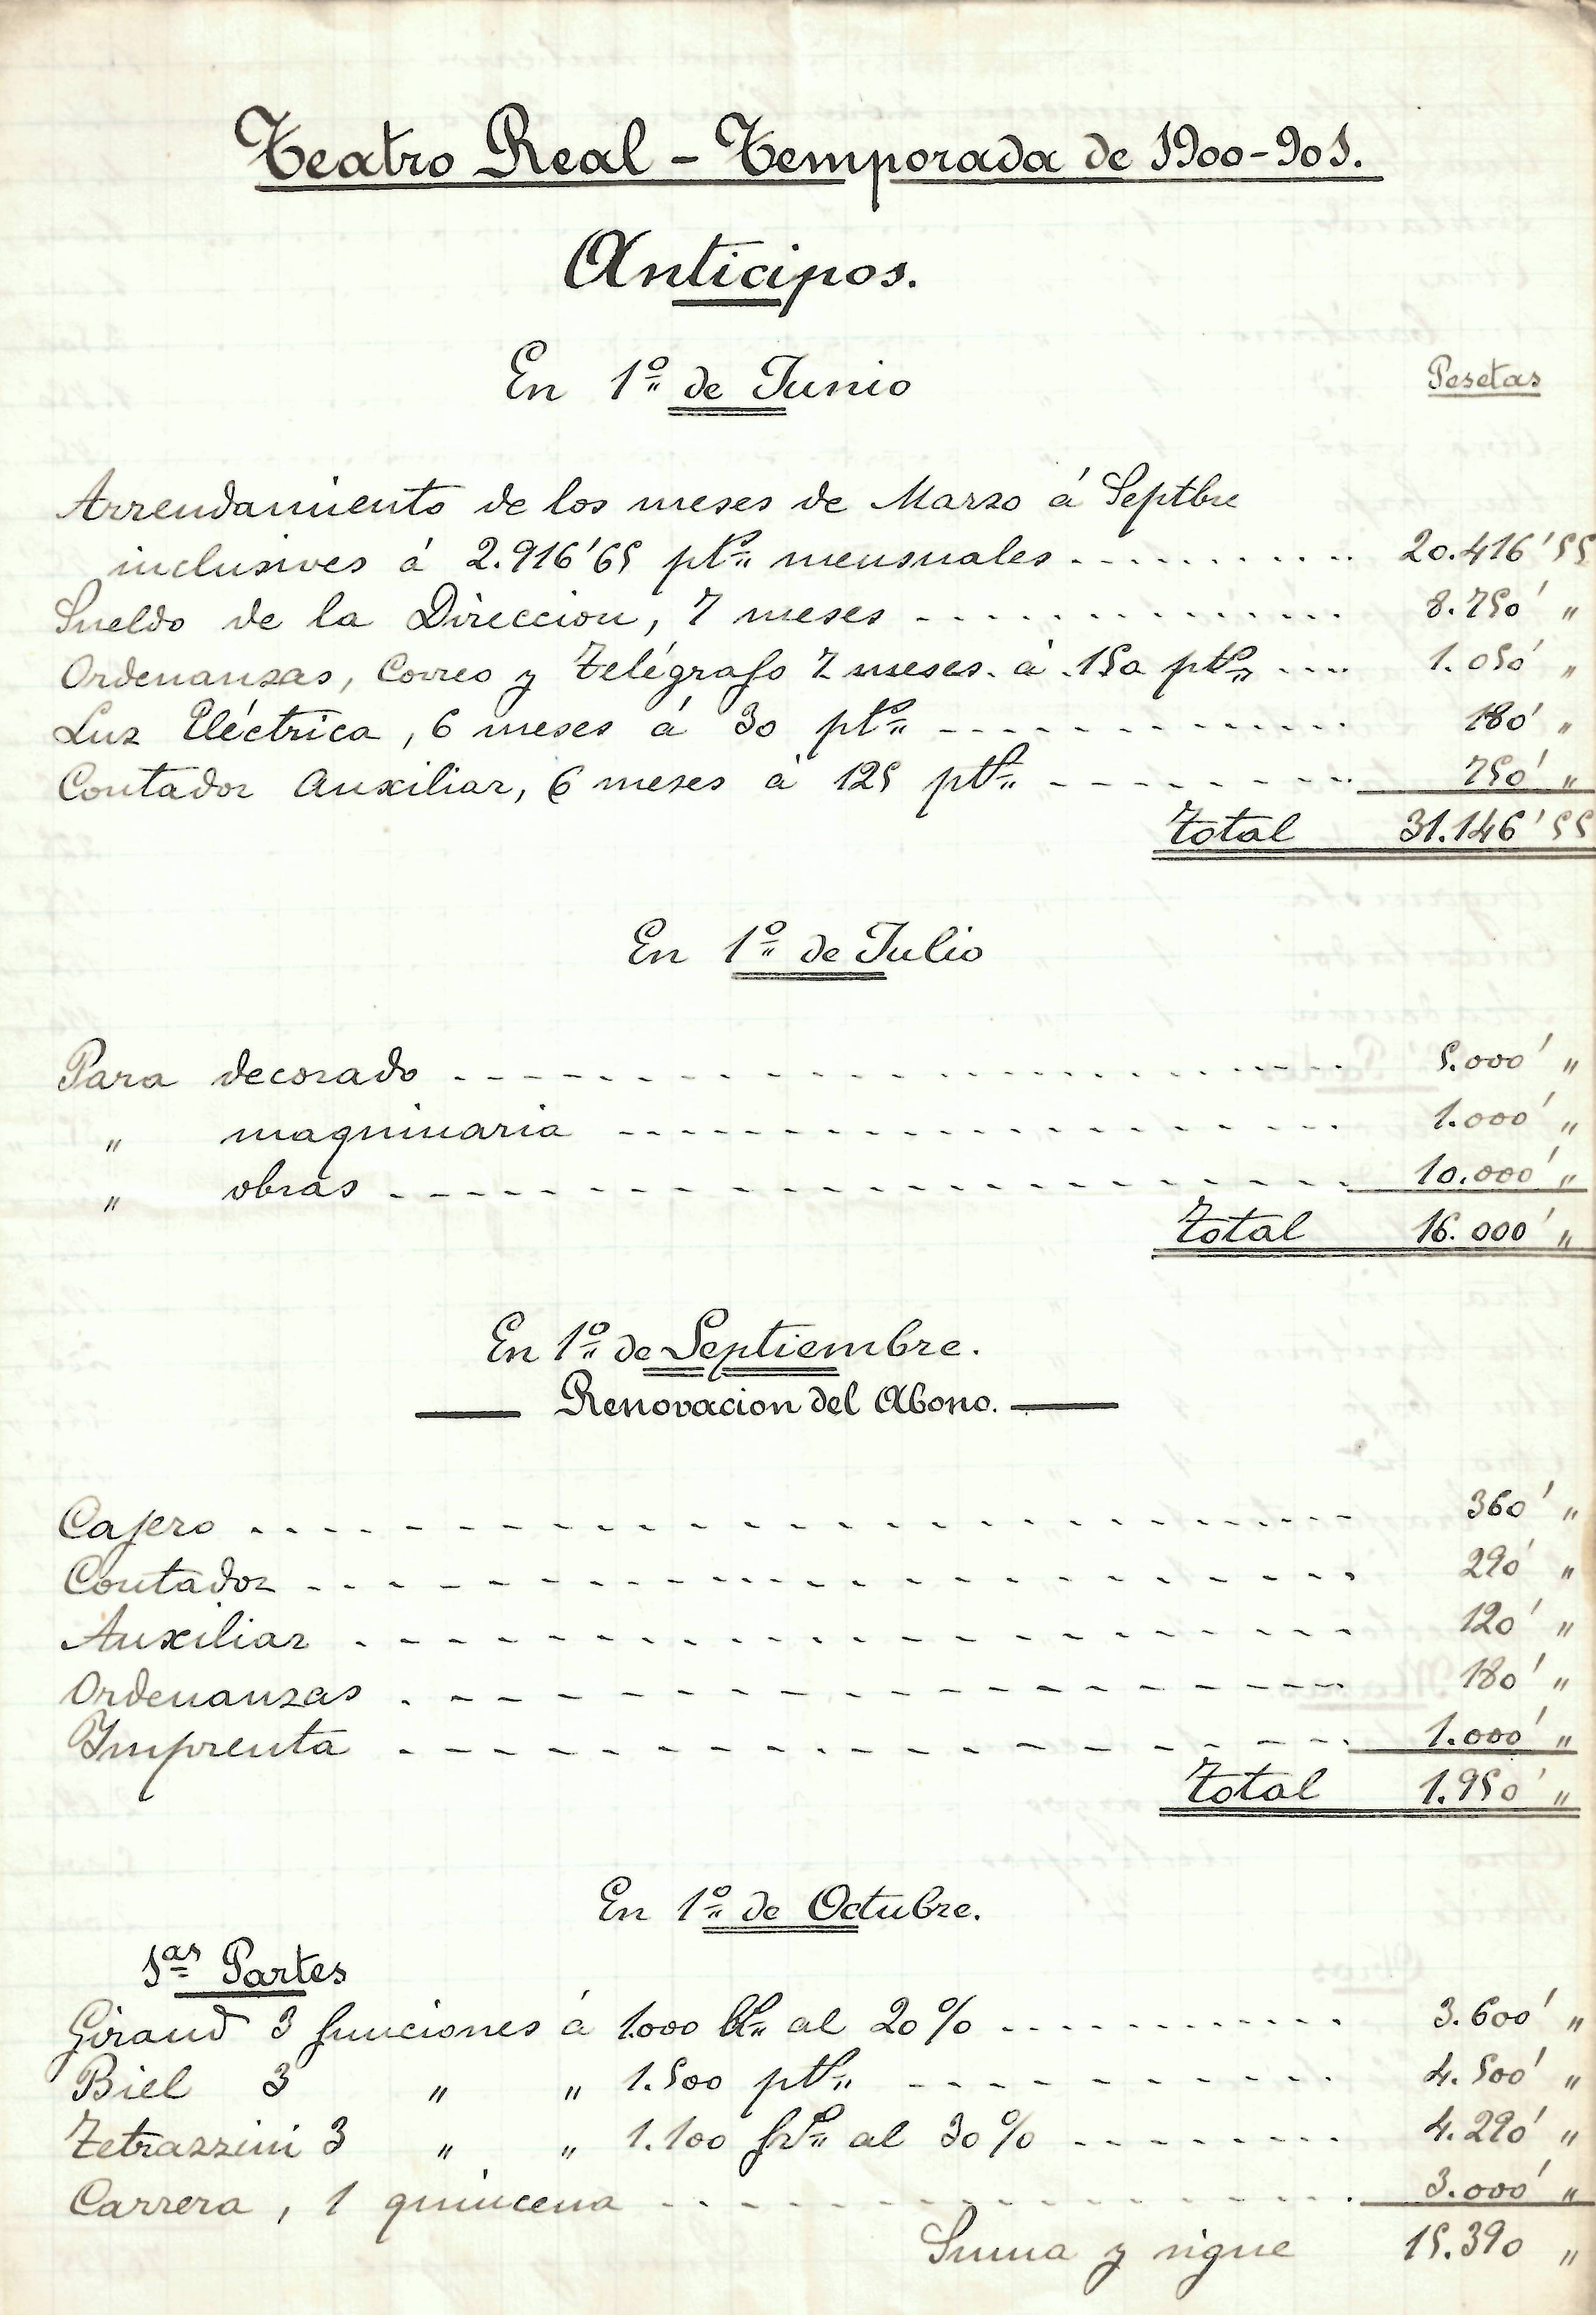 Teatro Real - Temporada de 1900-901.
Anticipos.
En 1º de Junio
Pesetas
Arrendamiento de los meses de Marzo á Septbre
inclusives á 2.916'65 ptsˢ mensuales . . . . . . . . . . 20.416'55
Sueldo de la Direccion, 7 meses . . . . . . . . . . 8.750' "
Ordenanzas, Correo y Telégrafo 7 meses. á 150 ptˢ . . . . 1.050' "
Luz Eléctrica, 6 meses á 30 ptˢ . . . . . . . . . . 180' "
Contador Auxiliar, 6 meses á 125 ptˢ . . . . . . . . . . 750' "
Total 31.146'55
En 1º de Julio
Para decorado . . . . . . . . . . 5.000' "
" maquinaria . . . . . . . . . . 1.000' "
" obras . . . . . . . . . . 10.000' "
Total 16.000' "
En 1º de Septiembre.
Renovacion del Abono.
Cajero . . . . . . . . . . 360' "
Contador . . . . . . . . . . 290' "
Auxiliar . . . . . . . . . . 120' "
Ordenanzas . . . . . . . . . . 180' "
Imprenta . . . . . . . . . . 1.000' "
Total 1.950' "
En 1º de Octubre.
1ᵃˢ Partes
Giraud 3 funciones á 1.000 al 20% . . . . . . . . . . 3.600' "
Biel 3 " " 1.500 ptˢ . . . . . . . . . . 4.500' "
Tetrazzini 3 " " 1.100 frˢ al 30% . . . . . . . . . . 4.290' "
Carrera, 1 quincena . . . . . . . . . . 3.000' "
Suma y sigue 15.390 "